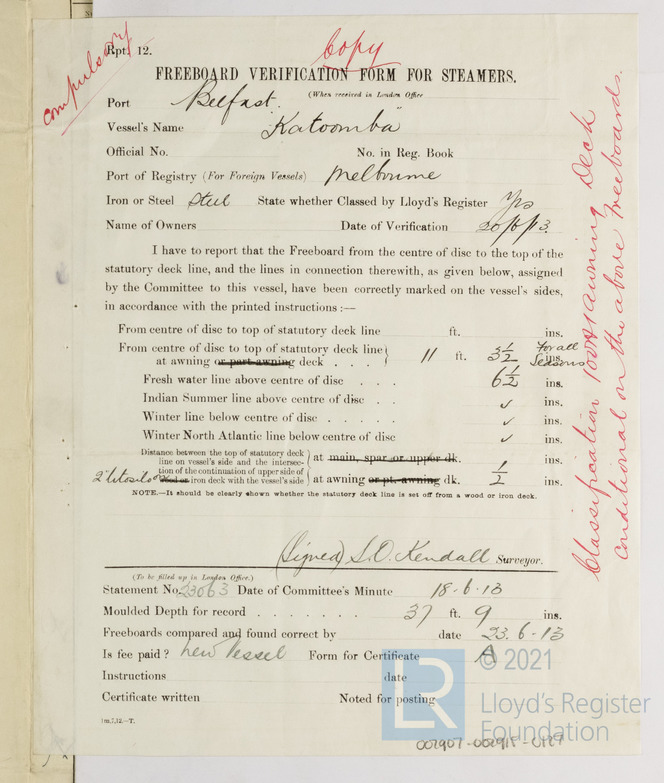 compulsory
Rpt. 12.
Copy
FREEBOARD VERIFICATION FORM FOR STEAMERS.
(When received in London Office
Port Belfast.
Vessel's Name "Katoomba"
Official No. No. in Reg. Book
Port of Registry (For Foreign Vessels) Melbourne
Iron or Steel Steel State whether Classed by Lloyd's Register Yes
Name of Owners Date of Verification 20/6/13.
I have to report that the Freeboard from the centre of disc to the top of the
statutory deck line, and the lines in connection therewith, as given below, assigned
by the Committee to this vessel, have been correctly marked on the vessel's sides,
in accordance with the printed instructions :—
From centre of disc to top of statutory deck line ft. ins.
From centre of disc to top of statutory deck line
at awning or part awning deck . . . 11 ft. 3½ ins. For all Seasons
Fresh water line above centre of disc . . . 6½ ins.
Indian Summer line above centre of disc . . ✓ ins.
Winter line below centre of disc . . . . ✓ ins.
Winter North Atlantic line below centre of disc ✓ ins.
Distance between the top of statutory deck
line on vessel's side and the intersec-
tion of the continuation of upper side of
wood or iron deck with the vessel's side
at main, spar or upper dk. ins.
at awning or pt. awning dk. ½ ins.
NOTE.—It should be clearly shown whether the statutory deck line is set off from a wood or iron deck.
(Signed) S.O. Kendall Surveyor.
(To be filled up in London Office.)
Statement No. 23063 Date of Committee's Minute 18-6-13
Moulded Depth for record . . . . . . . 37 ft. 9 ins.
Freeboards compared and found correct by date 23.6-13
Is fee paid? New Vessel Form for Certificate A
Instructions date
Certificate written Noted for posting
1m,7,12.—T.
Classification 100A1 awning Deck
conditional on the above Freeboards.
LR
© 2021
Lloyd's Register
Foundation
002907-002915-0129